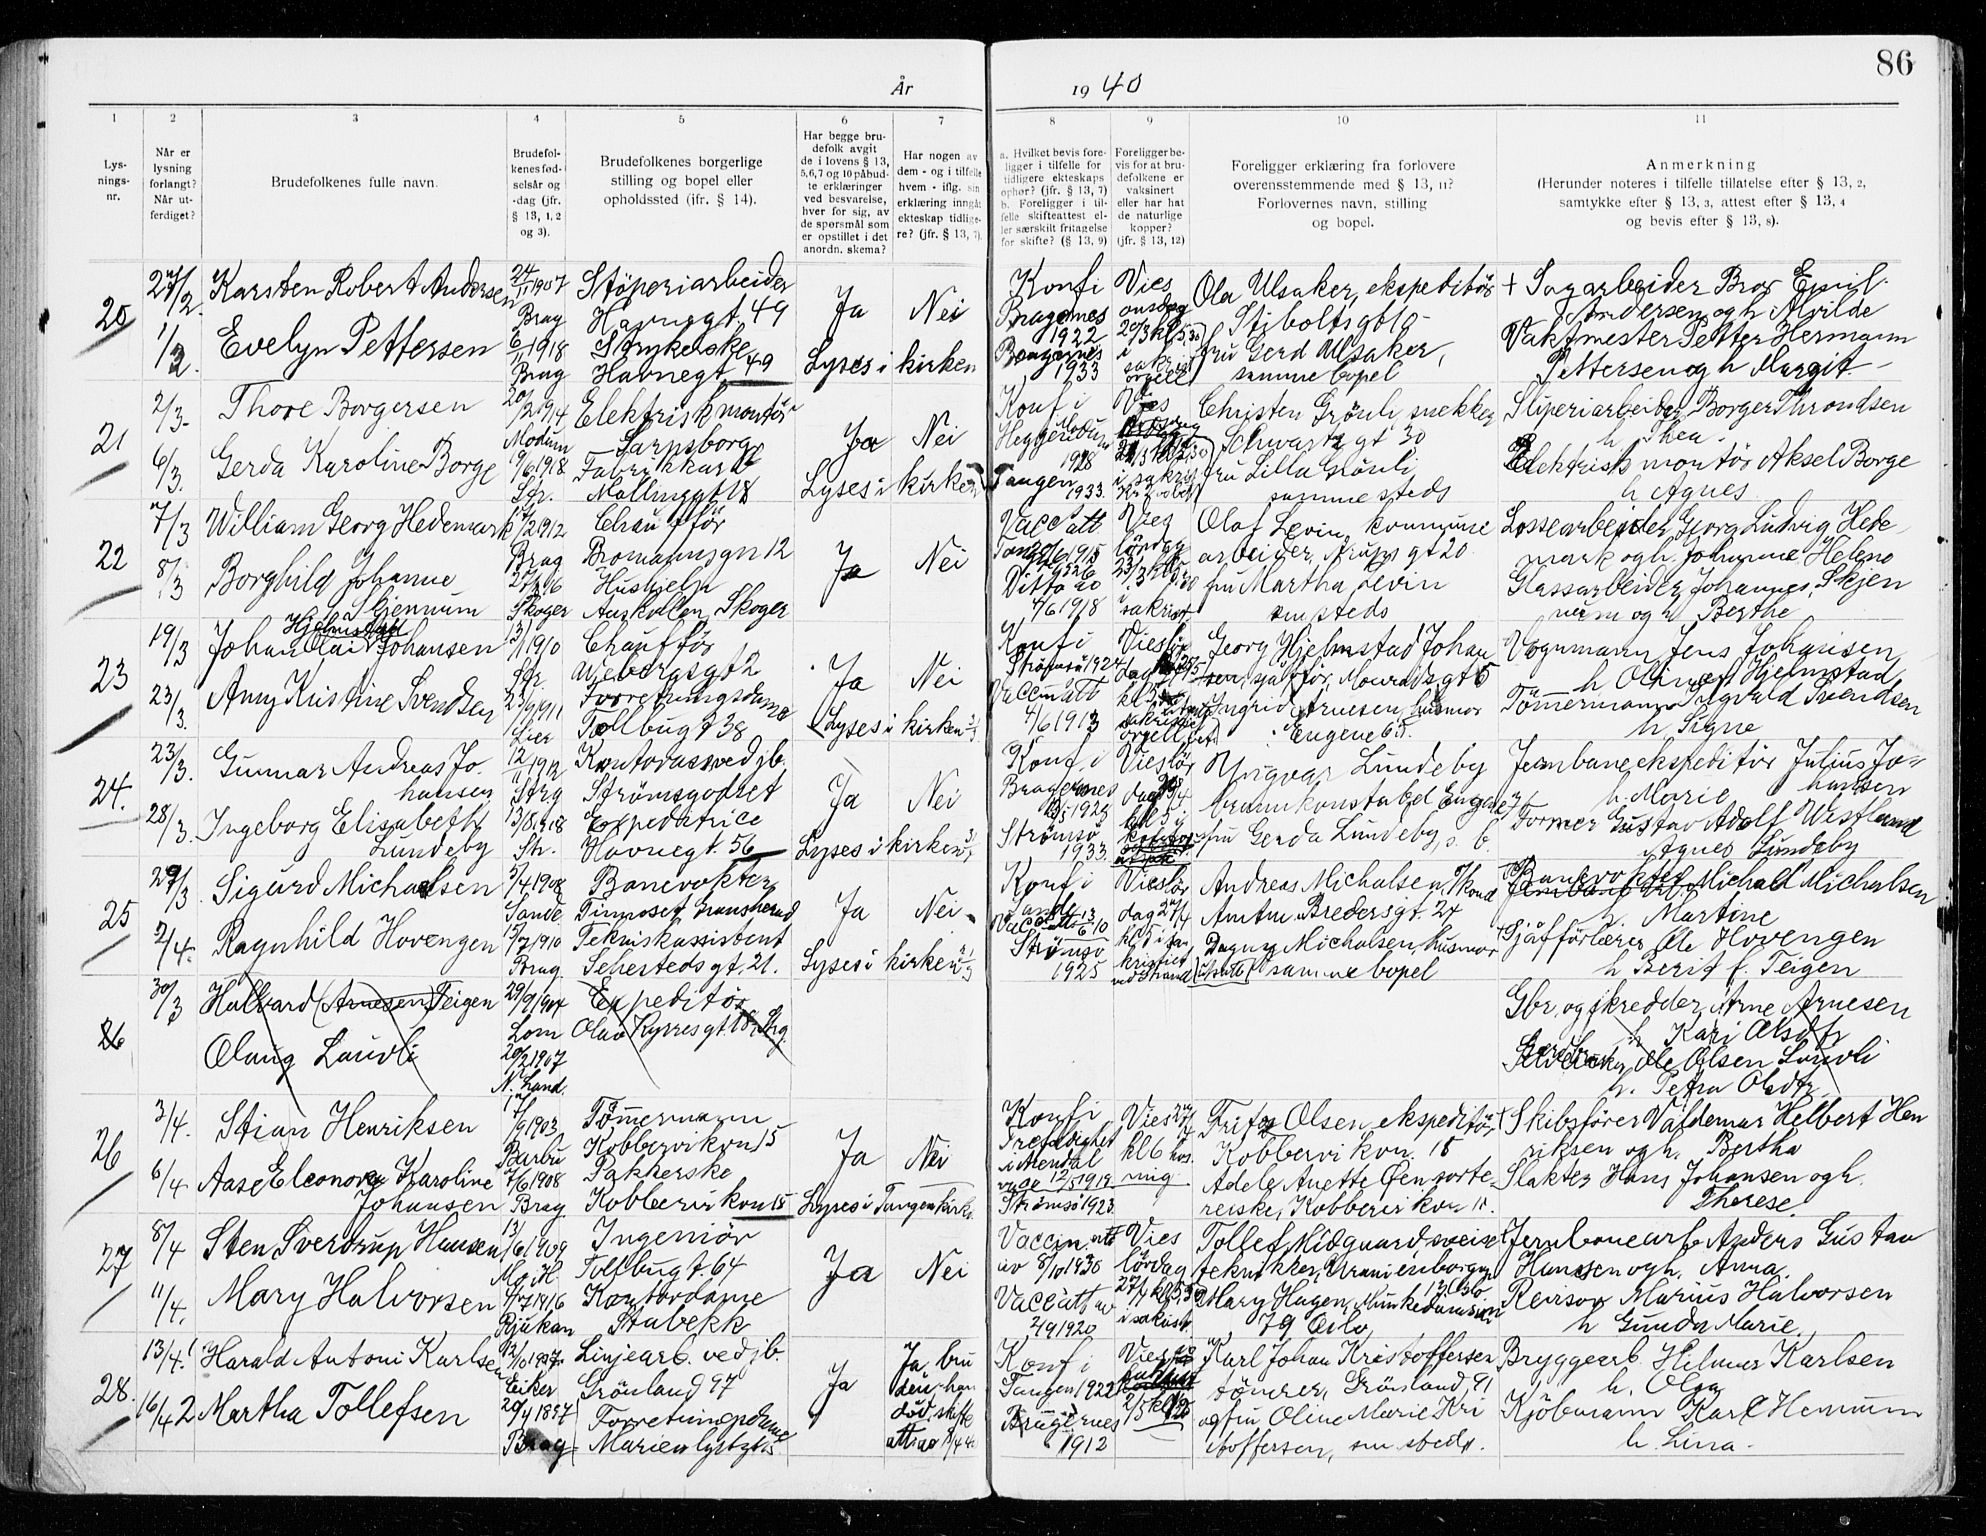 86
År 1940
1 2 3 4 5 6 7 8 9 10 11
Lysningsnr.
Når er lysning forlangt? Når utferdiget?
Brudefolkenes fulle navn.
Brudefolkenes fødselsår og -dag (jfr. § 13, 1, 2 og 3).
Brudefolkenes borgerlige stilling og bopel eller opholdssted (ifr. § 14).
Har begge brudefolk avgit de i lovens § 13, 5,6,7 og 10 påbudte erklæringer ved besvarelse, hver for sig, av de spørsmål som er opstillet i det anordn. skema?
Har nogen av dem - og i tilfelle hvem - iflg. sin erklæring inngåt ekteskap tidligere? (jfr. § 13, 7).
a. Hvilket bevis foreligger i tilfelle for tidligere ekteskaps ophør? (jfr. § 13, 7)
b. Foreligger i tilfelle skifteattest eller særskilt fritagelse for skifte? (§ 13, 9)
Foreligger bevis for at brudefolkene er vaksinert eller har hat de naturlige kopper? (jfr. § 13, 12)
Foreligger erklæring fra forlovere overensstemmende med § 13, 11? Forlovernes navn, stilling og bopel.
Anmerkning
(Herunder noteres i tilfelle tillatelse efter § 13, 2, samtykke efter § 13, 3, attest efter § 13, 4 og bevis efter § 13, 8).
20
27/2.
Karsten Robert Andersen
24/11 1907
Brag
Støperiarbeider
Havnegt 49
Ja Nei
1/3.
Evelyn Pettersen
6/11 1918
Brag
Strykerske
Havnegt. 49
Lyses i kirken
Konf i
Bragernes
1922
Bragernes
1933
Vies
onsdag
20/3 kl 5,30
i
sakristi
orgel
Ola Ulsaker, ekspeditør
Stiboltsgt 6
fru Gerd Ulsaker,
samme bopel
+ Sagarbeider Bror Emil
Andersen og h Alvilde
Vaktmester Petter Hermann
Pettersen og h Margit
21
2/3
Thore Borgersen
Modum
Elektrisk montør
Sarpsborg
Ja Nei
6/3.
Gerda Karoline Borge
9/6 1918
Str.
Fabrikkarb
Møllinggt 18
Lyses i kirken
Konf i
Heggen Modum
1928
Tangen
1933.
Vies
Christen Grønli snekker
Schwartz gt 30
fru Lilla Grønli
samme steds
Sliperiarbeider Borger Throndsen
h Thea
Elektrisk montør Aksel Borge
h Agnes
22
7/3
William Georg Hedemark
Brag
Chauffør
Bromannsgn 12
Ja Nei
8/3
Borghild Johanne
Skjennum
Skoger
Hushjelp
Auskollen, Skoger
Vacc att
Ditto
4/6 1918
Vies
lørdag
sakrist
Olaf Levin kommune
arbeider, Arups gt 20
fru Martha Levin
sm steds
Lossearbeider Georg Ludvig Hede
mark og h. Johanne Helene
Glassarbeider Johannes Skjen
num og h Berthe
23
19/3
Hjelmstad
Johan Olai Johansen
13/1 1910
Str
Chauffør
Wiebergsgt 2
Ja Nei
23/3.
Anny Kristine Svendsen
23/9 1911
Lier
Forretningsdame
Tollbug 38
Lyses i kirken
Konf i
Strømsø 1924
Vaccinatt
4/6 1913
Vies lør
Georg Hjelmstad Johan
sen, sjåfør, Mouradsgt 5
Ingrid Arnesen, husmor
Engene 65.
Vognmann Jens Johansen
h Oline f Hjelmstad
Tømmermann Sigvald Svendsen
h Signe
24.
23/3.
Gunnar Andreas Jo
hansen
12/11 1912
Strg
Kontorass ved jb.
Strømsgodset
Ja Nei
28/3.
Ingeborg Elisabeth
Lundeby
13/8 1918
Str.
Expeditrice
Havnegt. 56
Lyses i kirken
Konf i
Bragernes
1925
Strømsø
1933.
Vies lør
dag
Yngvar Lundeby
brannkonstabel Engene
fru Gerda Lundeby, s. b.
Jernbaneekspeditør Julius Jo
hansen
h. Marie
Former Gustav Adolf Westlund
Agnes Lundeby
25
29/3.
Sigurd Michaelsen
5/4 1908
Sande
Banevokter
Ja Nei
2/4.
Ragnhild Hovengen
15/7 1910
Brag.
Teknisk assistent
Sehesteds gt. 21.
Lyses i kirken
Konf i
Sande
Strømsø
1925
Vies lør
dag 27/4
Andreas Michalsen,
Amtm Bredersgt. 24
Dagny Michalsen, husmor
samme bopel
Banevokter Michael Michalsen
h. Martine
Sjåførlærer Ole Hovengen
h Berit f. Teigen
26
30/3
Halvard (Arnesen) Teigen
29/9 1904
Lom
Expeditør
Olav Kyrresgt. 18, Strg.
Olaug Lauvli
20/2 1907
N. Land.
Gbr. og skredder Arne Arnesen
h Kari Olsdtr
Ole Olsen Lauvli
h. Petra Olsdtr
26
3/4.
Stian Henriksen
1/9 1903
Barbu
Tømmermann
Kobbervikvn, 15
Ja Nei
6/4
Aase Eleonora Karoline
Johansen
7/6 1908
Brag.
Pakkerske
Kobbervikvn 15
Lyses i Tangen kirke
Konf i
Trefoldighet
i Arendal
Strømsø 1923.
Vies 27/4
kl 6 hos
mig
Fritz Olsen ekspeditør
Kobbervikvn. 15
Adele Anette Øen sorte
rerske, Kobbervikvn 15.
+ Skibsfører Valdemar Helbert Hen
riksen og h. Bertha
Slakter Hans Johansen og h.
Therese
27
8/4
Sten Sverdrup Hansen
13/6 1909
Ingeniør
Tollbugt. 64
Ja Nei
11/4.
Mary Halvorsen
Rjukan
Kontordame
Stabekk
Vaccin. att
av 8/10 1930
Vacc att av
2/9 1920
Vies
lørdag
i sakrist.
Tollef Midgaard, sveise
tekniker, Uranienborgvn
12, Oslo
Mary Hagen, Munkedamsveien
79 Oslo
Jernbanearb Anders Gustav
Hansen og h. Anna
Revisor Marius Halvorsen
h Gunda Marie
28.
13/4.
1 Harald Antoni Karlsen
Eiker
Linjearb. ved jb.
Grønland 97
Ja
Ja, bru
den, han
død, skifte
att av
16/4
2 Martha Tollefsen
20/4 1897
Brag
Forretningsdame
Marienlystgt 5
Konf i
Tangen 1922
Bragernes
1912
Vies
2/5
Karl Johan Kristoffersen
tømrer, Grønland 91
og fru Oline Marie Kri
stoffersen, sm steds.
Bryggearb. Hilmar Karlsen
h. Olga
Kjøbmann Karl Hennum
h. Lina